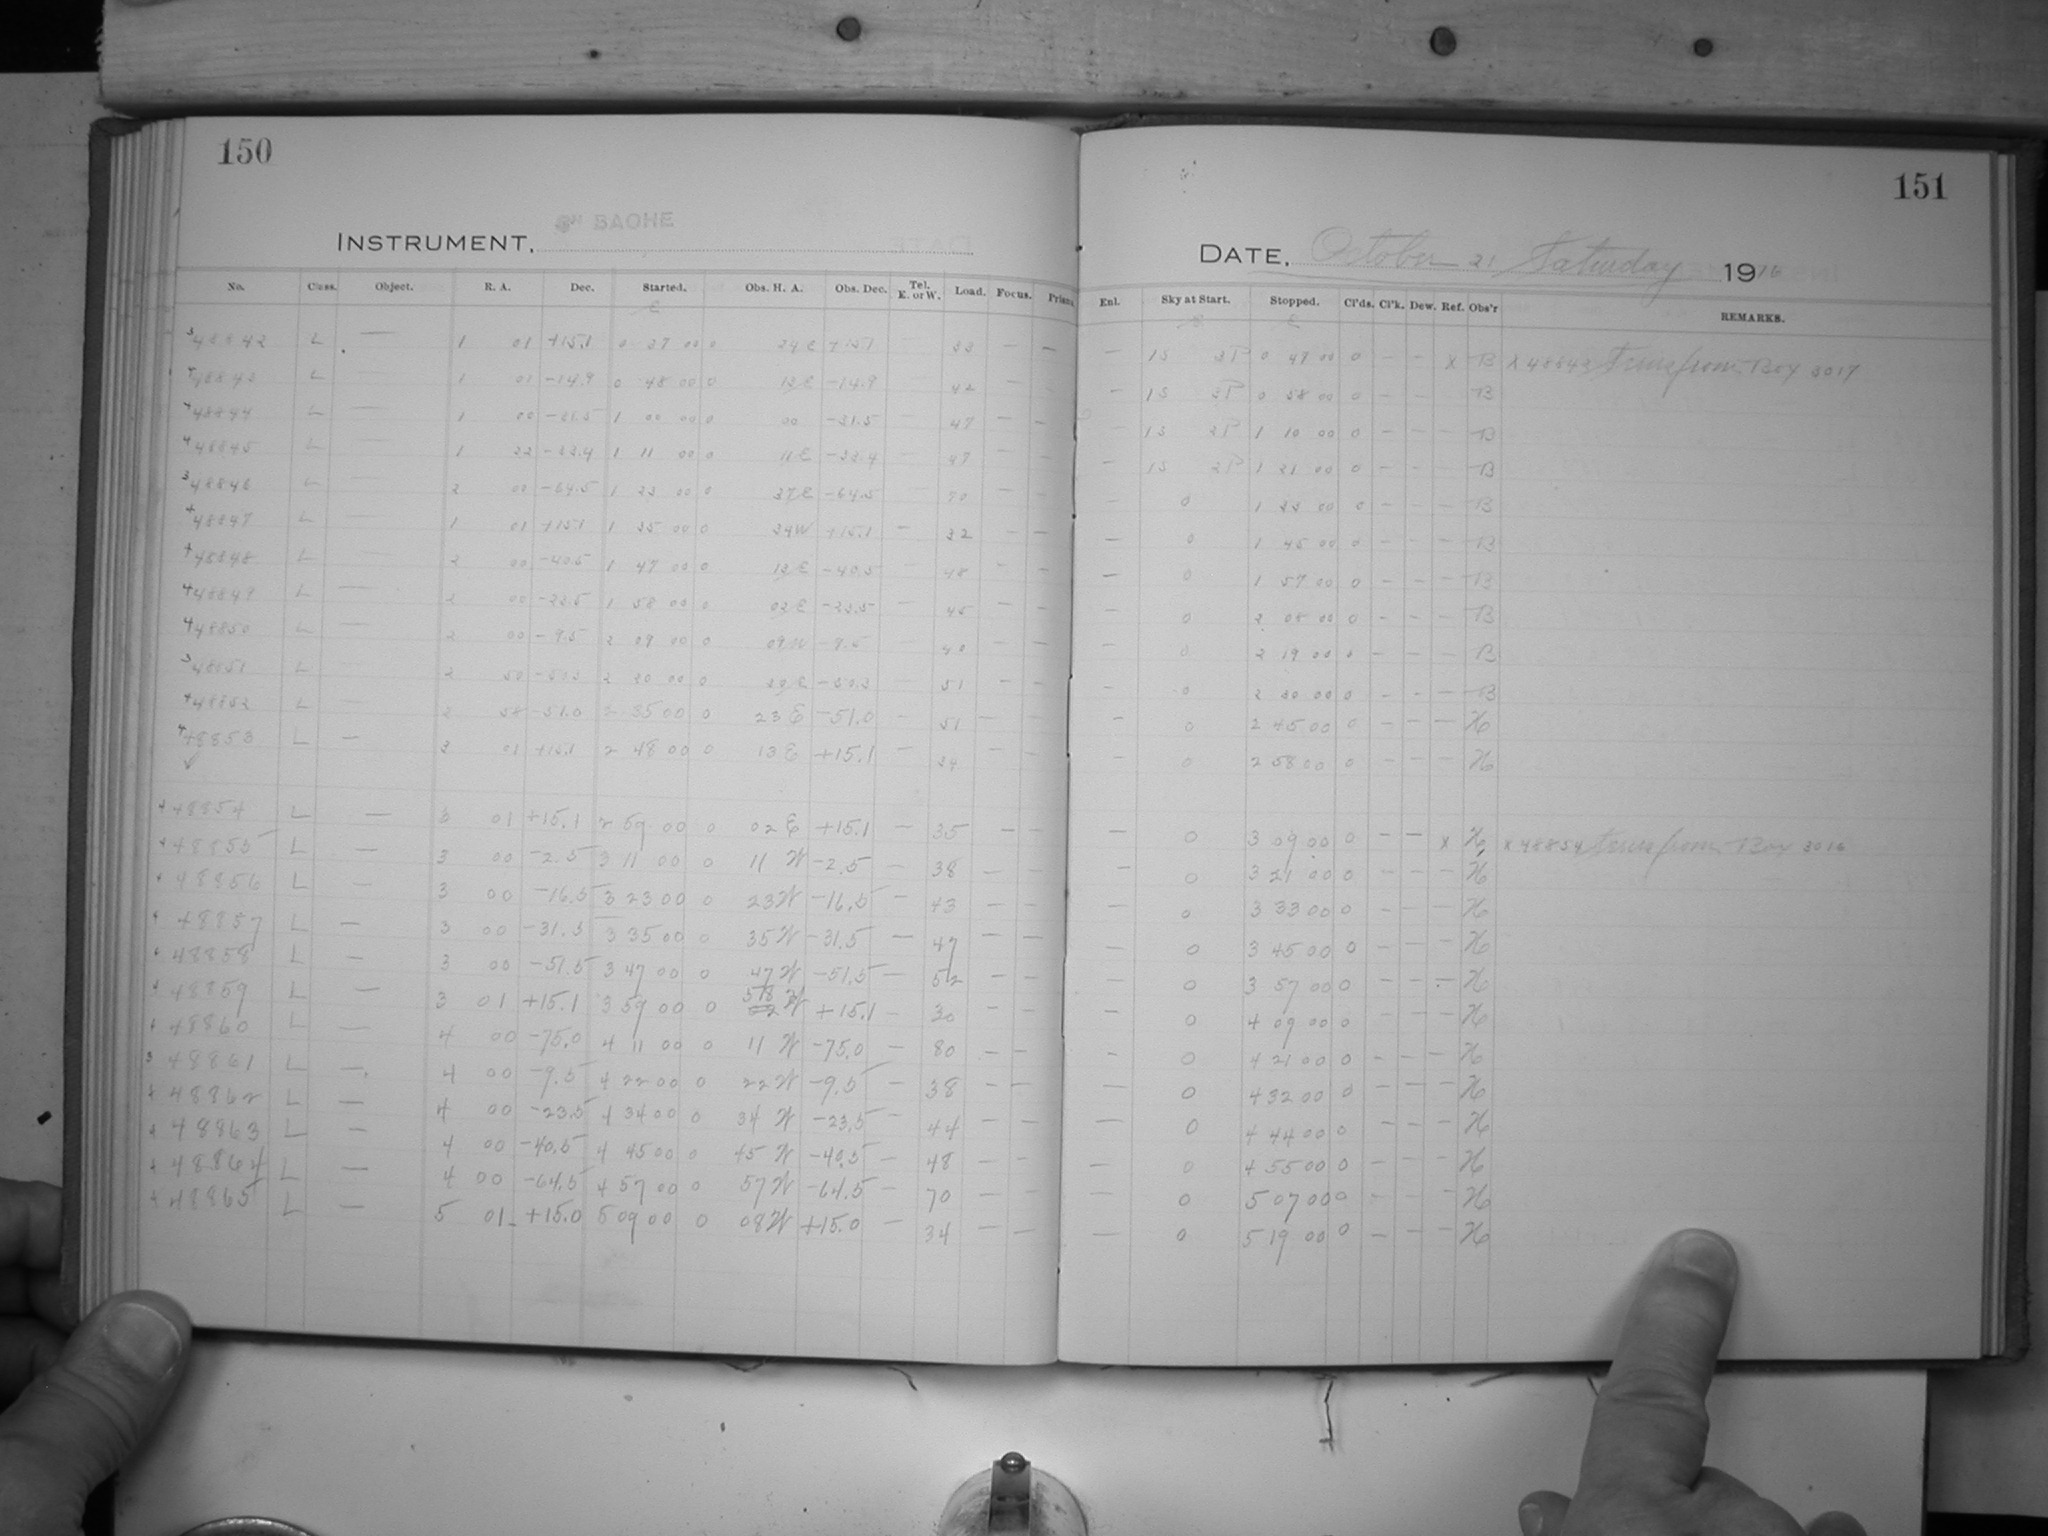 150
INSTRUMENT, 8" BACHE
No. Class. Object. R. A. Dec. Started. Obs. H. A. Obs. Dec. Tel. E. or W. Load. Focus. Prism.
3 48842 L — 1 01 +15.1 0 37 00 0 24 E +15.1 33 — —
4 48843 L — 1 01 -14.9 0 48 00 0 13 E -14.9 42 — —
4 48844 L — 1 00 -31.5 1 00 00 0 00 -31.5 — 47 — —
4 48845 L — 1 22 -33.4 1 11 00 0 11 E -33.4 — 47 — —
3 48846 L — 2 00 -64.5 1 23 00 0 37 E -64.5 — 70 — —
4 48847 L — 1 01 +15.1 1 35 00 0 34 W +15.1 — 32 — —
4 48848 L — 2 00 -40.5 1 47 00 0 13 E -40.5 — 48 — —
4 48849 L — 2 00 -23.5 1 58 00 0 02 E -23.5 — 45 — —
4 48850 L — 2 00 -9.5 2 09 00 0 09 W -9.5 — 40 — —
3 48851 L — 2 50 2 20 00 0 E — 51 — —
4 48852 L — 2 58 -51.0 2 35 00 0 23 E -51.0 — 51 — —
4 48853 L — 3 01 +15.1 2 48 00 0 13 E +15.1 — 34 — —
4 48854 L — 3 01 +15.1 2 59 00 0 02 E +15.1 — 35 — —
4 48855 L — 3 00 -2.5 3 11 00 0 11 W -2.5 — 38 — —
4 48856 L — 3 00 -16.5 3 23 00 0 23 W -16.5 — 43 — —
4 48857 L — 3 00 -31.5 3 35 00 0 35 W -31.5 — 47 — —
4 48858 L — 3 00 -51.5 3 47 00 0 47 W -51.5 — 52 — —
4 48859 L — 3 01 +15.1 3 59 00 0 58 W +15.1 — 30 — —
4 48860 L — 4 00 -75.0 4 11 00 0 11 W -75.0 — 80 — —
3 48861 L — 4 00 -9.5 4 22 00 0 22 W -9.5 — 38 — —
4 48862 L — 4 00 -23.5 4 34 00 0 34 W -23.5 — 44 — —
4 48863 L — 4 00 -40.5 4 45 00 0 45 W -40.5 — 48 — —
4 48864 L — 4 00 -64.5 4 57 00 0 57 W -64.5 — 70 — —
4 48865 L — 5 01 +15.0 5 09 00 0 08 W +15.0 — 34 — —
151
DATE, October 21 Saturday 1916
Enl. Sky at Start. Stopped. Cl'ds. Cl'k. Dew. Ref. Obs'r REMARKS.
— 1S 2P 0 47 00 0 — — x B x 48842 trans from Box 3017
— 1S 2P 0 58 00 0 — — — B
— 1S 2P 1 10 00 0 — — — B
— 1S 2P 1 21 00 0 — — — B
— 0 1 33 00 0 — — — B
— 0 1 45 00 0 — — — B
— 0 1 57 00 0 — — — B
— 0 2 08 00 0 — — — B
— 0 2 19 00 0 — — — B
— 0 2 30 00 0 — — — B
— 0 2 45 00 0 — — — H
— 0 2 58 00 0 — — — H
— 0 3 09 00 0 — — x H x 48854 trans from Box 3016
— 0 3 21 00 0 — — — H
— 0 3 33 00 0 — — — H
— 0 3 45 00 0 — — — H
— 0 3 57 00 0 — — — H
— 0 4 09 00 0 — — — H
— 0 4 21 00 0 — — — H
— 0 4 32 00 0 — — — H
— 0 4 44 00 0 — — — H
— 0 4 55 00 0 — — — H
— 0 5 07 00 0 — — — H
— 0 5 19 00 0 — — — H